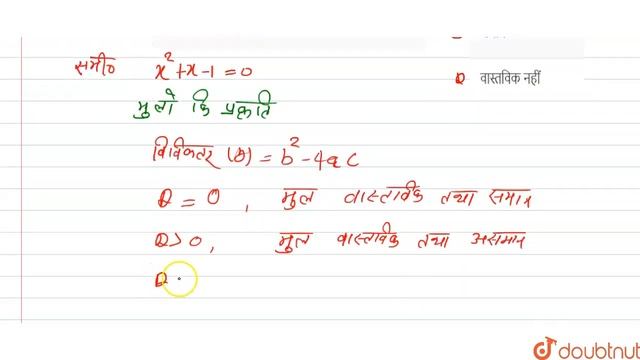 समी० x² + x - 1 = 0
D वास्तविक नहीं
मुलो कि प्रकृति
विविक्तर (D) = b² - 4ac
D = 0, मुल वास्तविक तथा समान
D > 0, मुल वास्तविक तथा असमान
D
doubtnut